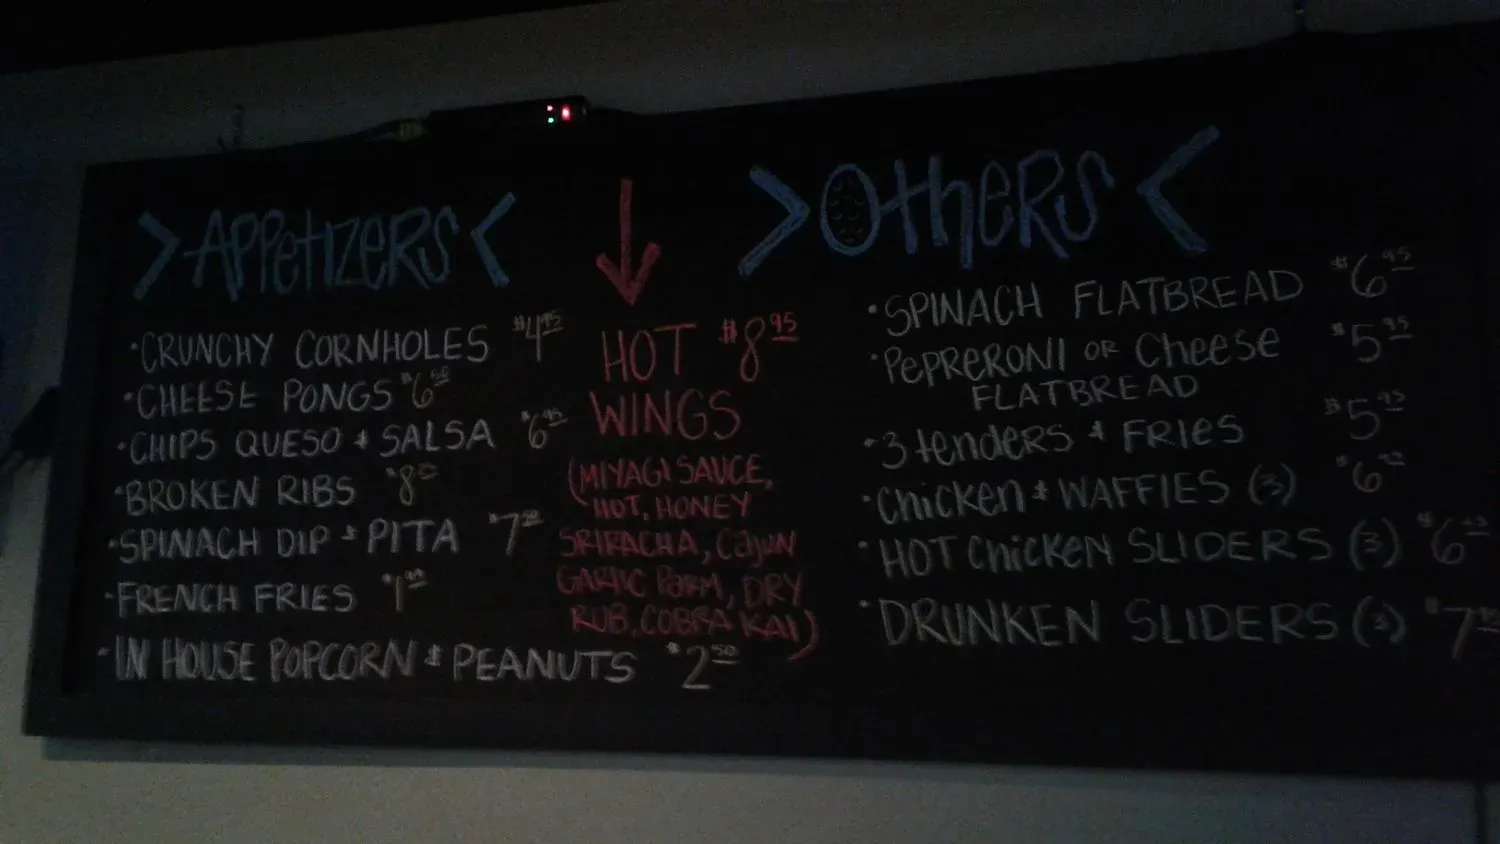 >Appetizers<
• CRUNCHY CORNHOLES $4.95
• CHEESE PONGS $6.50
• CHIPS QUESO & SALSA $6.95
• BROKEN RIBS $8
• SPINACH DIP & PITA $7.50
• FRENCH FRIES $1.99
• IN HOUSE POPCORN & PEANUTS $2.50
HOT $8.95
WINGS
(MIYAGI SAUCE,
HOT, HONEY
SRIRACHA, Cajun
GARLIC PARM, DRY
RUB, COBRA KAI)
>Others<
• SPINACH FLATBREAD $6.95
• PEPRERONI OR Cheese $5.95
FLATBREAD
• 3 tenders & FRIES $5.95
• Chicken & WAFFIES (3) $6
• HOT Chicken SLIDERS (3) $6
• DRUNKEN SLIDERS (3) $7